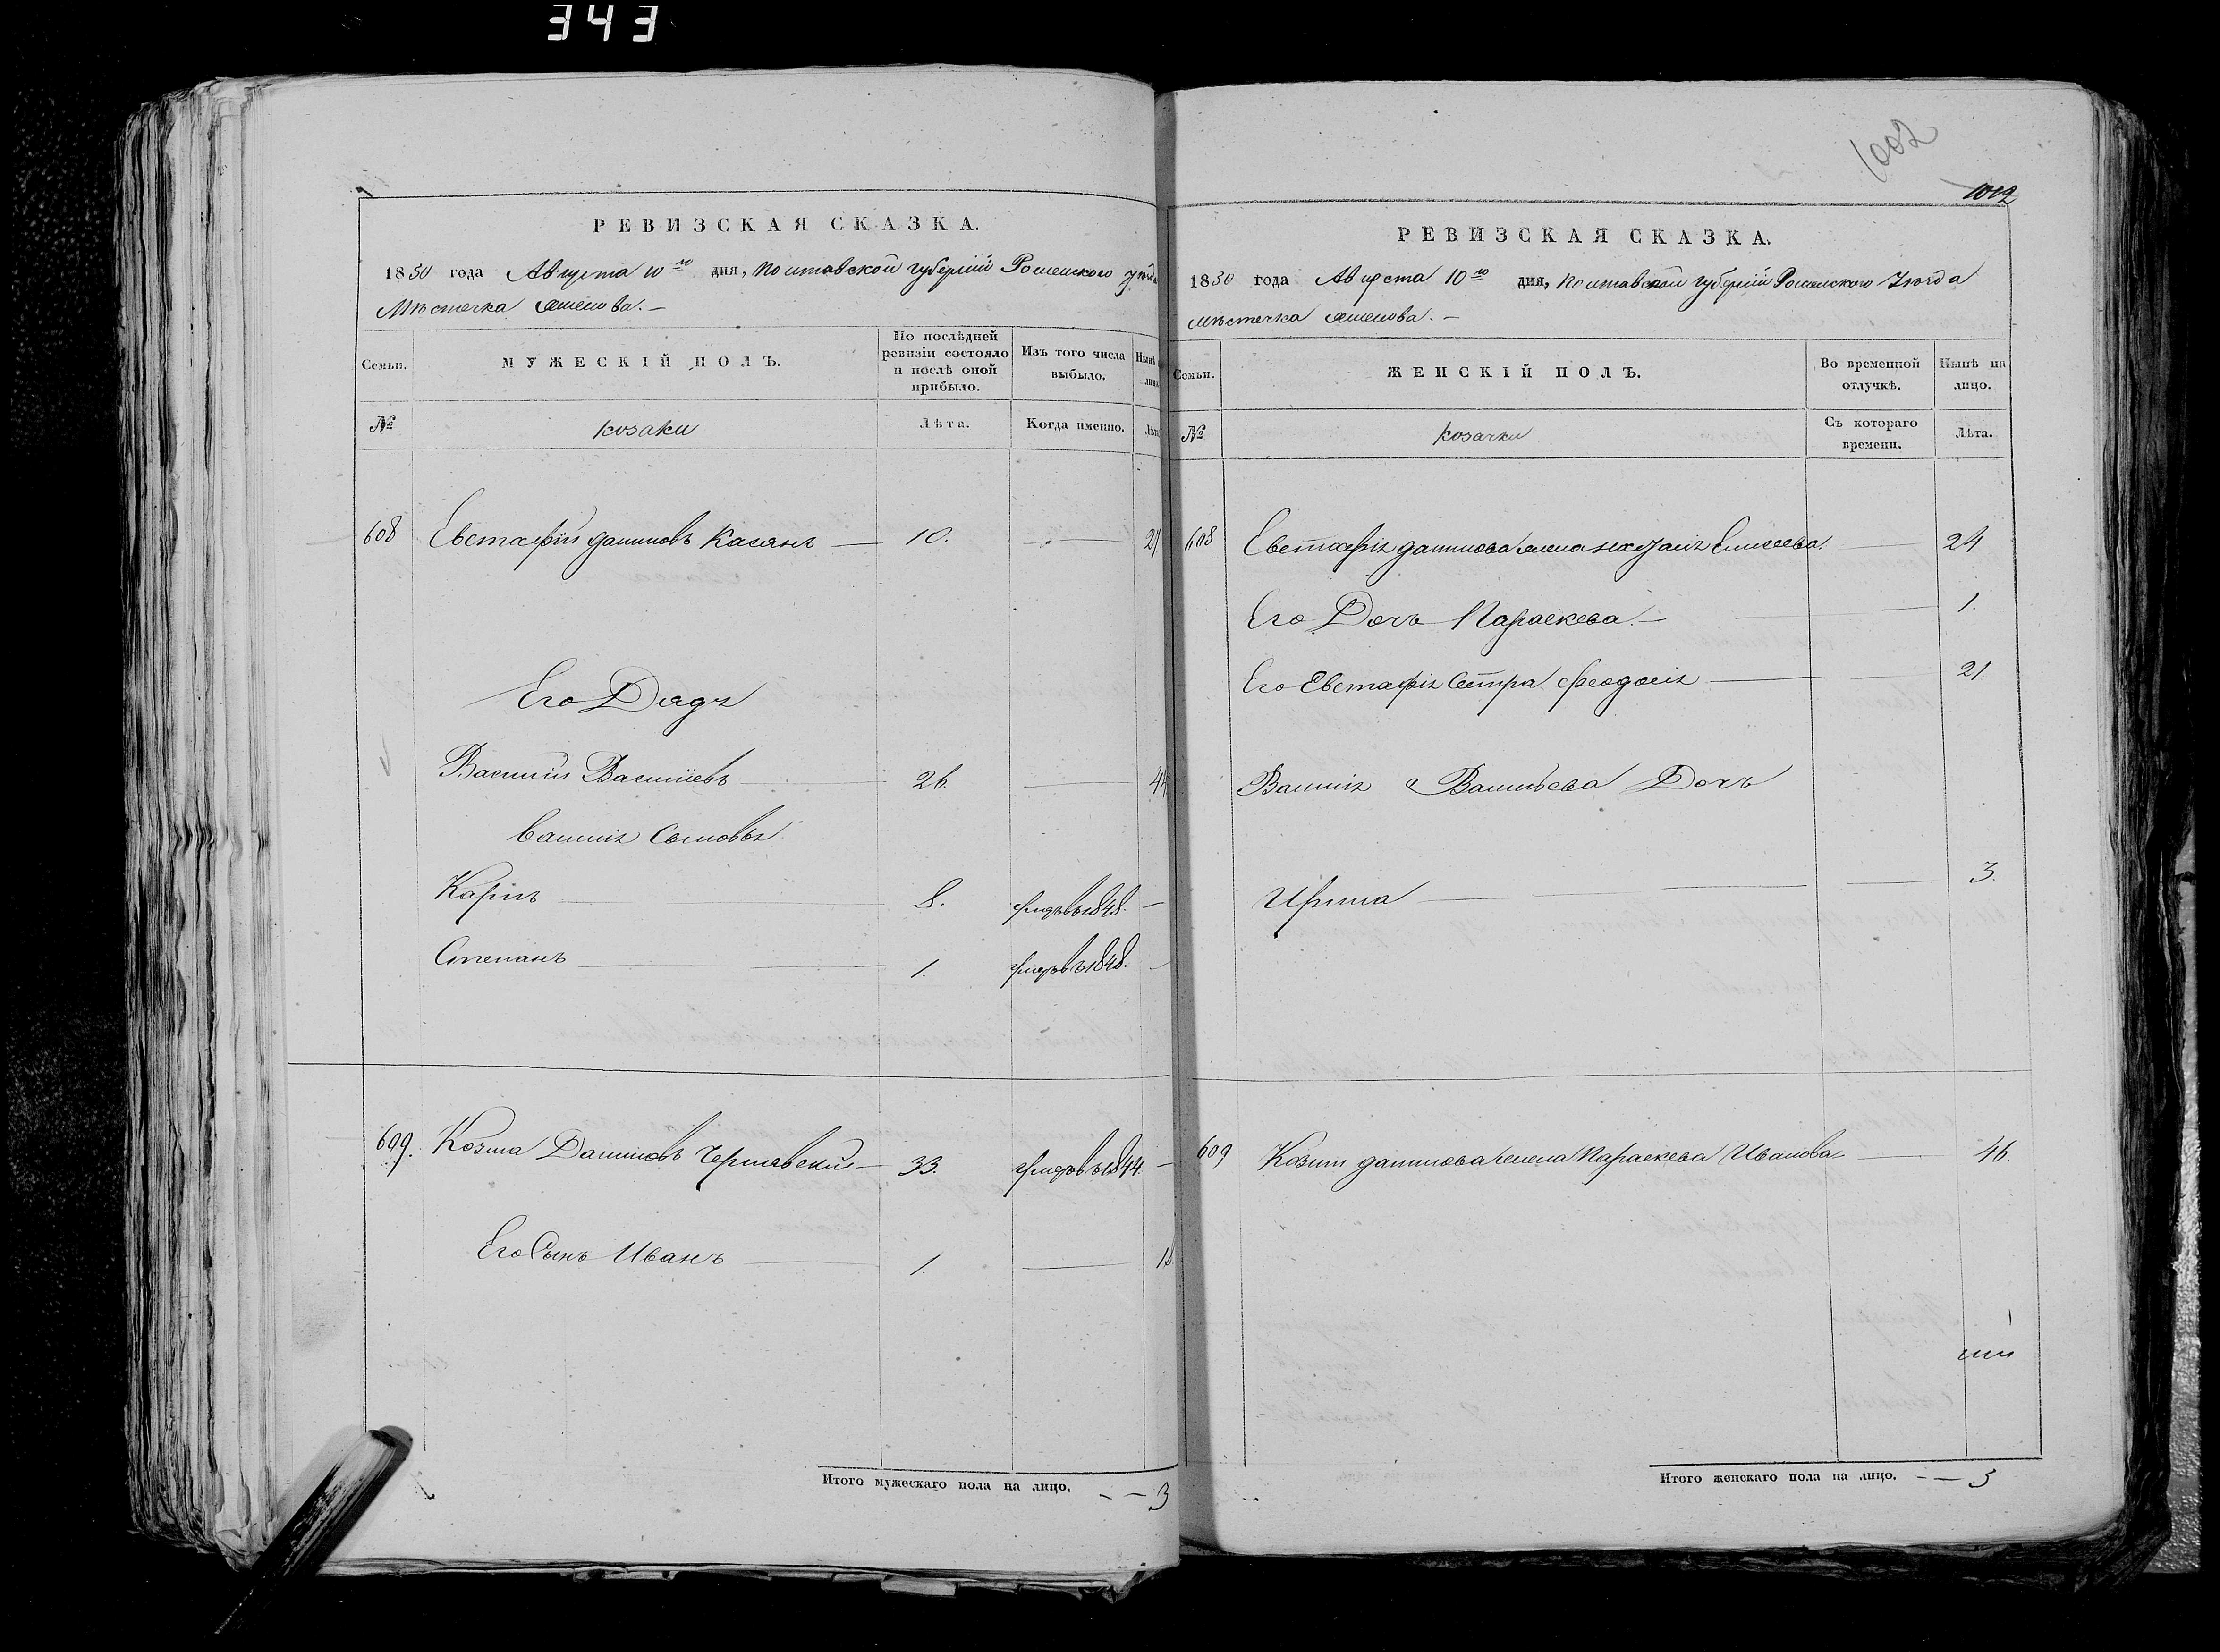 343
РЕВИЗСКАЯ СКАЗКА.
1850 года Августа 10го дня, Полтавской губерніи Роменского уѣзда
Мѣстечка
МУЖЕСКІЙ ПОЛЪ.
Семьи.
По послѣдней ревизіи состояло и послѣ оной прибыло.
Изъ того числа выбыло.
Нынѣ лицо
№
козаки
Лѣта.
Когда именно.
Лѣта
608 Евстафій Даниловъ Касянъ — 10. — 27
Его Дядя
Василий Василіевъ — 26. — 44
Василія Сыновья
Карпъ — 8. 1848. —
Степанъ — 1. 1848. —
609. Козма Даниловъ Чернявский — 33. 1844. —
Его Сынъ Иванъ — 1. — 18.
Итого мужескаго пола на лицо. - — 3
1002
1012
РЕВИЗСКАЯ СКАЗКА.
1850 года Августа 10го дня, Полтавской губерніи Роменского Уѣзда
мѣстечка
Семьи.
ЖЕНСКІЙ ПОЛЪ.
Во временной отлучкѣ.
Нынѣ на лицо.
№
козачки
Съ котораго времени.
Лѣта.
608 Евстафія Данилова жена Елисеева. — 24
Его Дочь Параскева. — 1.
Его Евстафія Сестра Феодосія — 21
Василія Васильева Дочь
Ирина — 3.
609 Козмы Данилова жена Параскева Иванова — 46.
Итого женскаго пола на лицо. - — 3